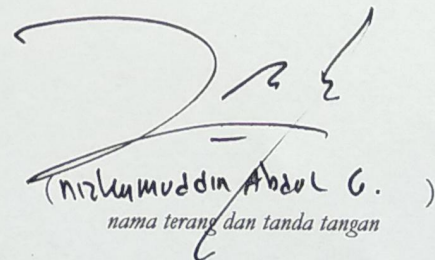 (Nizhumuddin Abdul G. )
nama terang dan tanda tangan